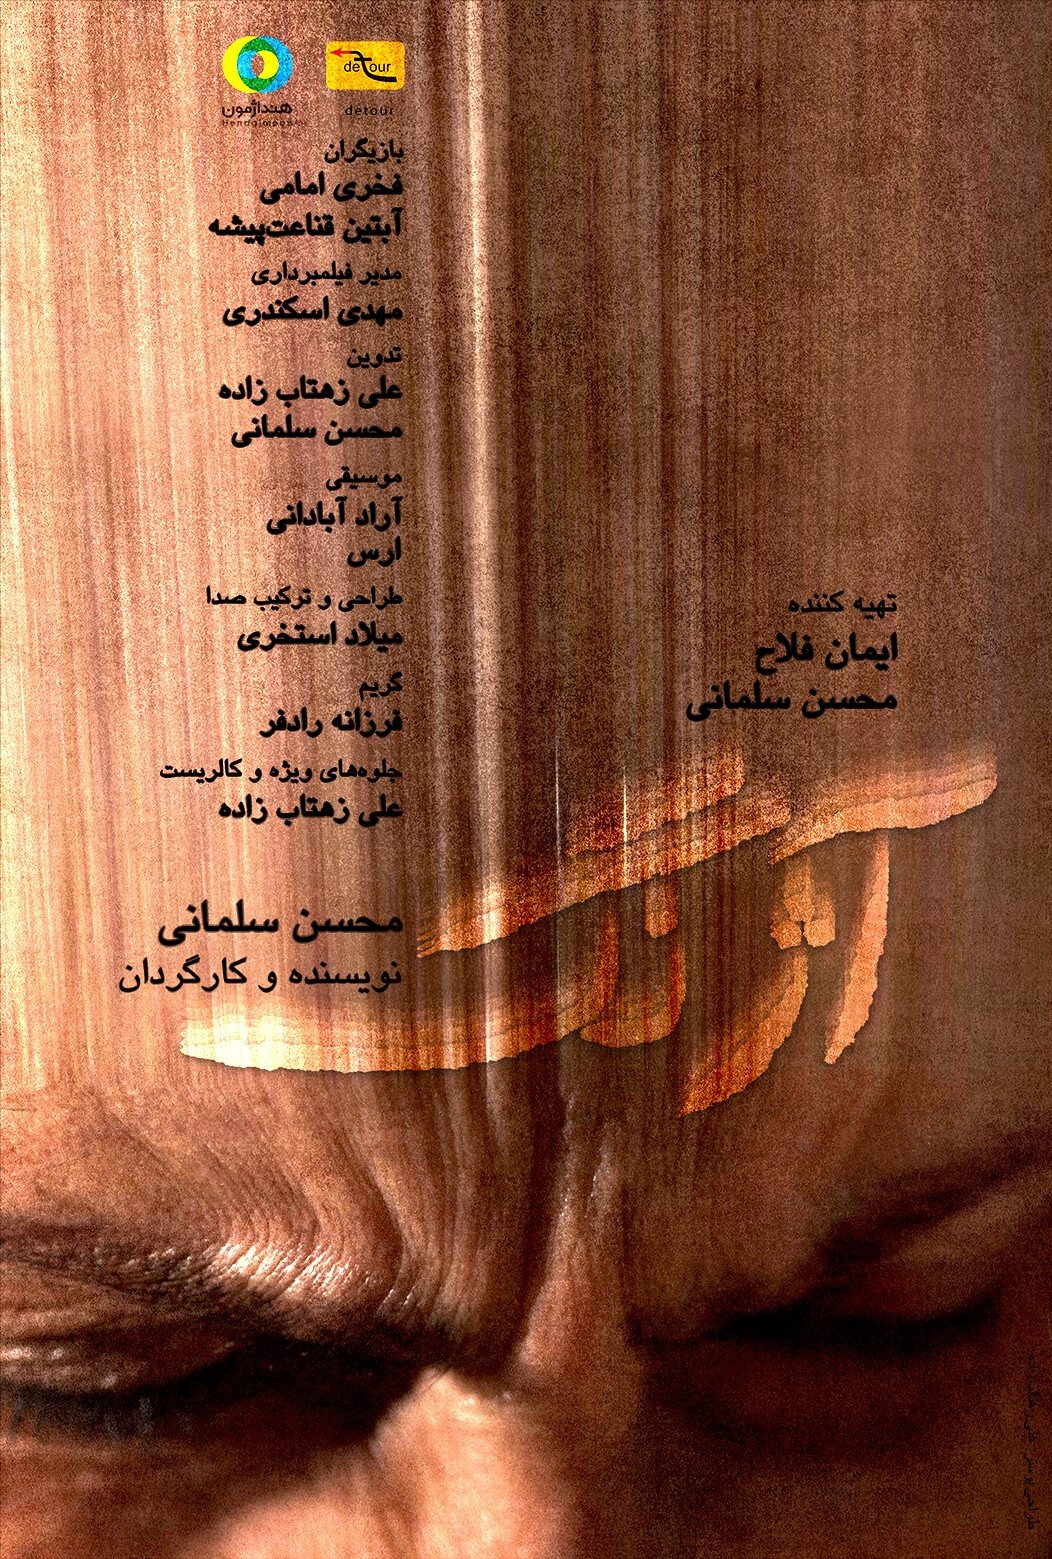 detour
هنداژمون
detour
بازیگران
فخری امامی
آبتین قناعت‌پیشه
مدیر فیلمبرداری
مهدی اسکندری
تدوین
علی زهتاب زاده
محسن سلمانی
موسیقی
آراد آبادانی
ارس
طراحی و ترکیب صدا
میلاد استخری
گریم
فرزانه رادفر
جلوه‌های ویژه و کالریست
علی زهتاب زاده
تهیه کننده
ایمان فلاح
محسن سلمانی
آژنگ
محسن سلمانی
نویسنده و کارگردان